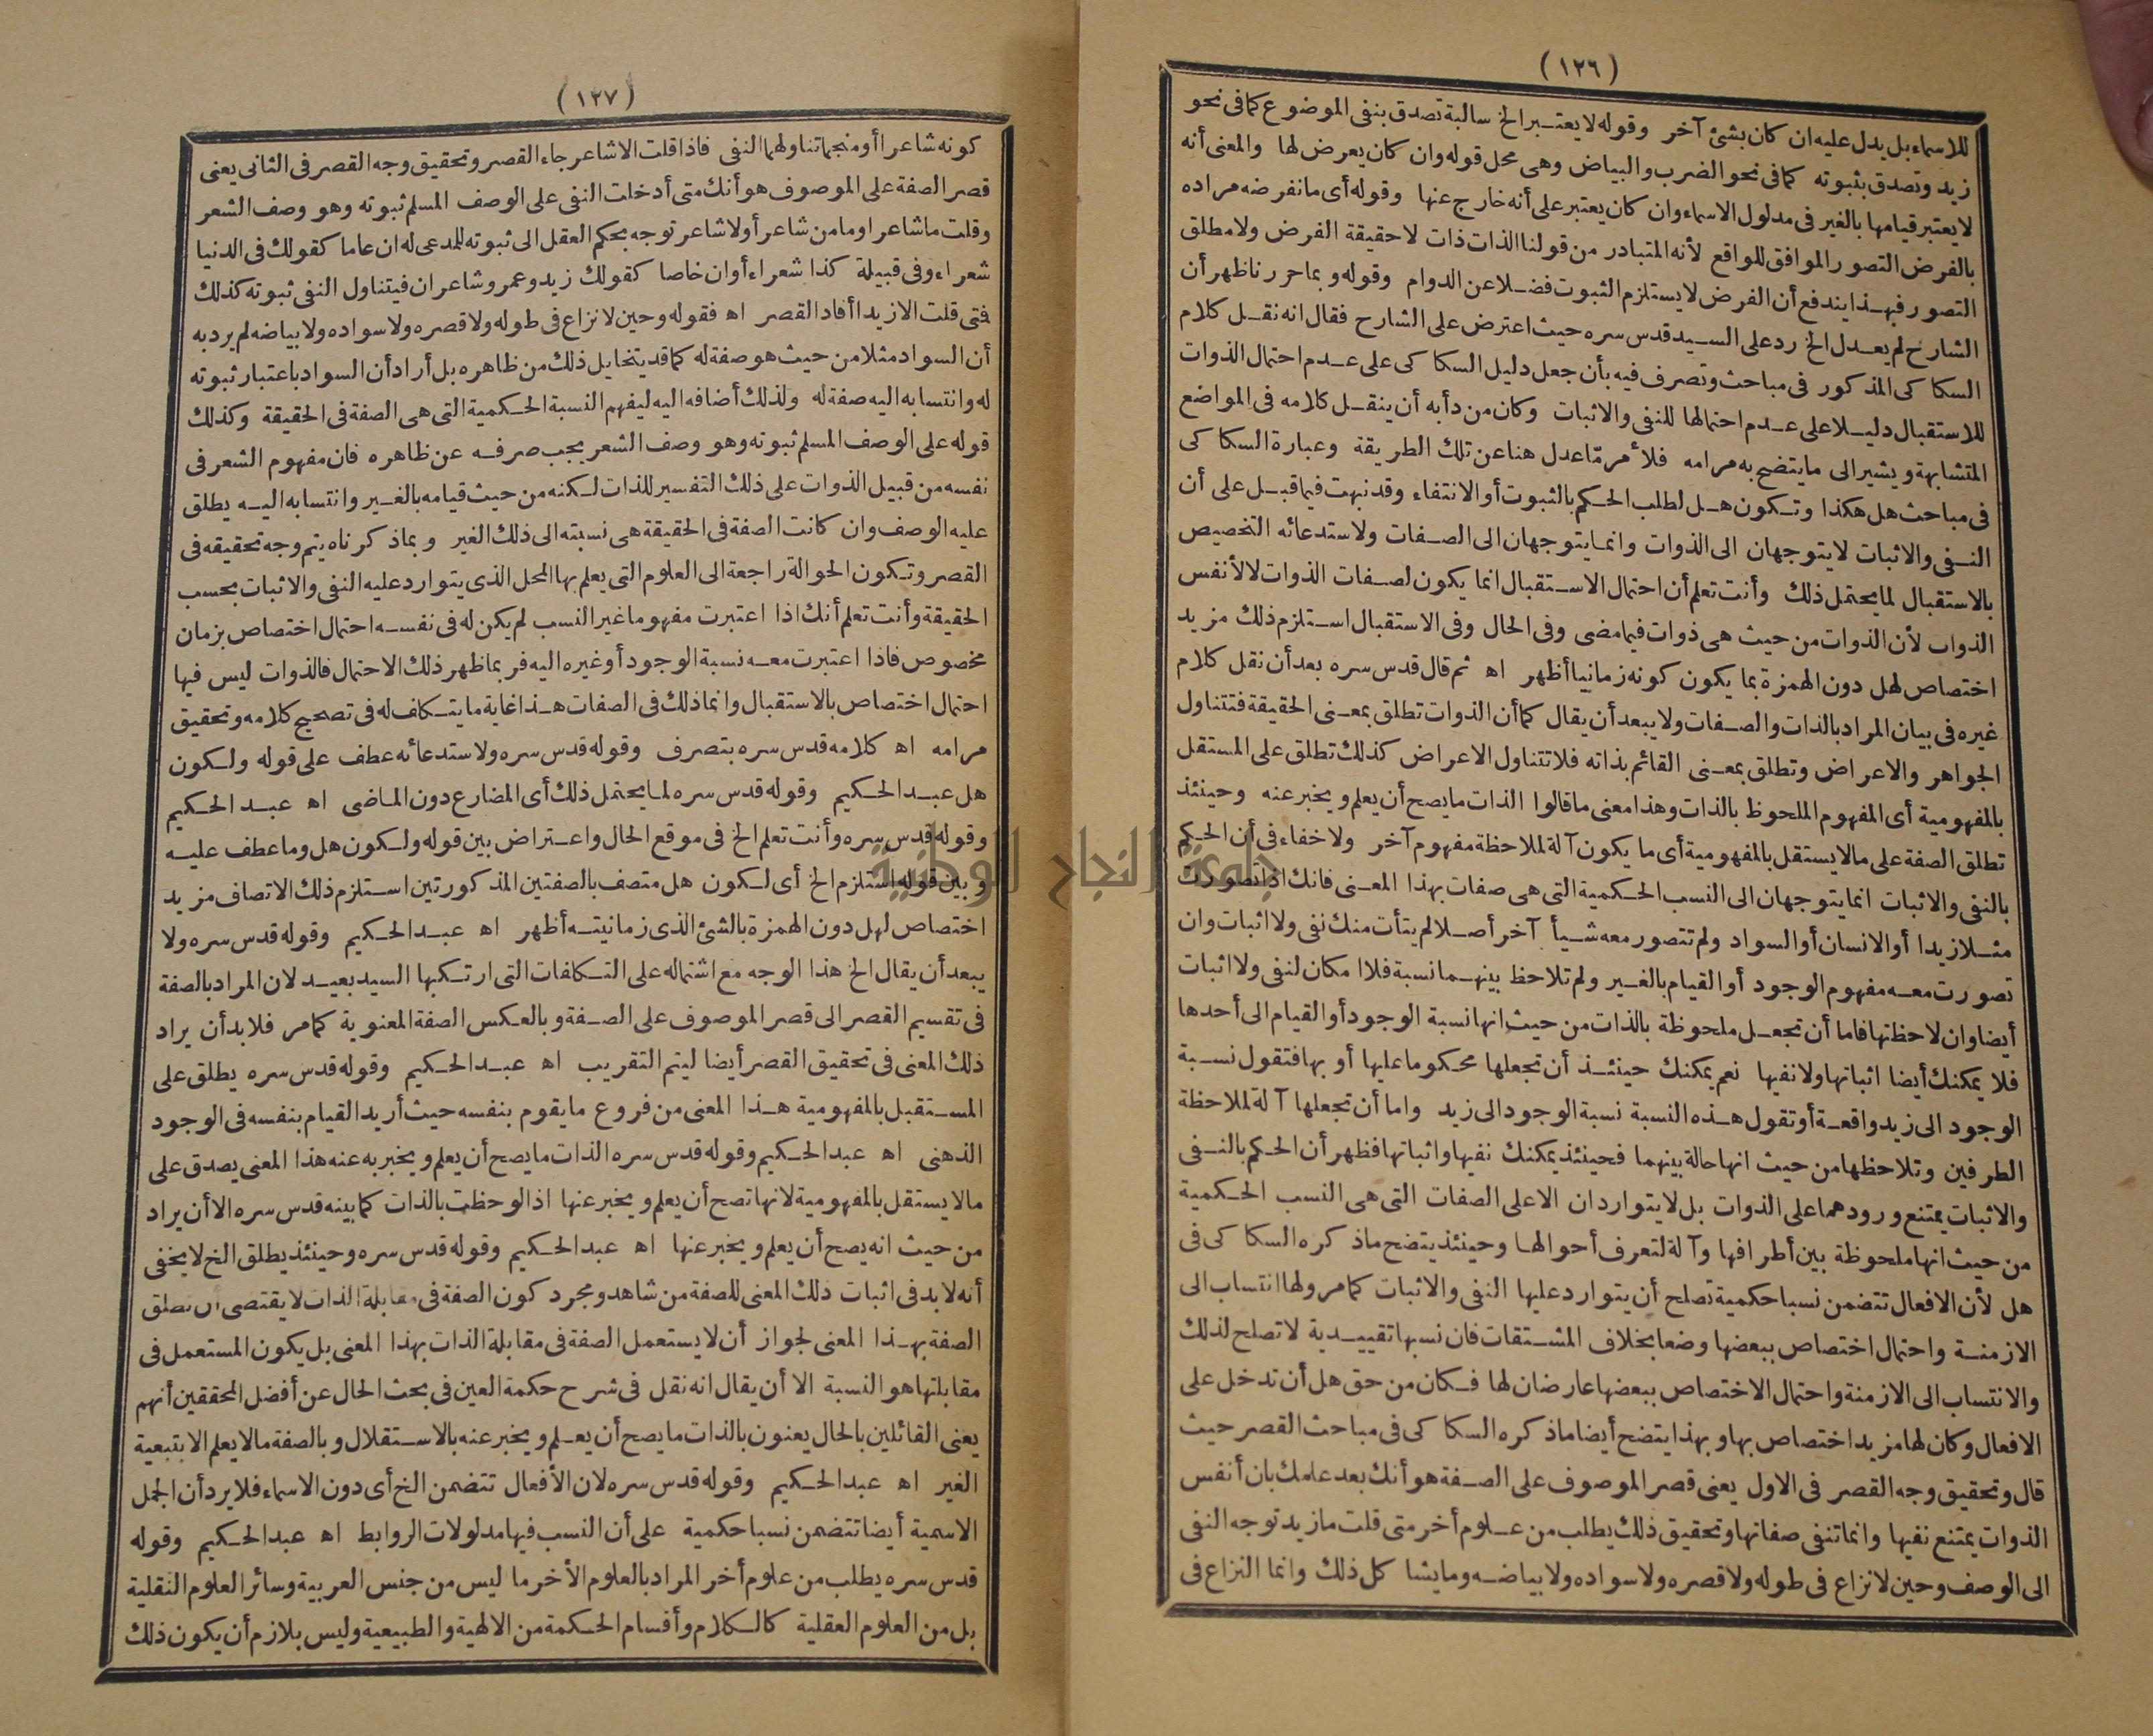 (١٢٦)
للاسماء بل يدل عليه ان كان بشئ آخر وقوله لا يعتبر الخ سالبة تصدق بنفى الموضوع كما فى نحو
زيد وتصدق بثبوته كما فى نحو الضرب والبياض وهى محل قوله وان كان يعرض لها والمعنى أنه
لا يعتبر قيامها بالغير فى مدلول الاسماء وان كان يعتبر على أنه خارج عنها وقوله أى ما نفرضه مراده
بالفرض التصور الموافق للواقع لأنه المتبادر من قولنا الذات ذات لا حقيقة الفرض ولا مطلق
التصور فبهذا يندفع أن الفرض لا يستلزم الثبوت فضلا عن الدوام وقوله وبما حررنا ظهر أن
الشارح لم يعدل الخ رد على السيد قدس سره حيث اعترض على الشارح فقال انه نقل كلام
السكاكى المذكور فى مباحث وتصرف فيه بأن جعل دليل السكاكى على عدم احتمال الذوات
للاستقبال دليلا على عدم احتمالها للنفى والاثبات وكان من دأبه أن ينقل كلامه فى المواضع
المتشابهة ويشير الى ما يتضح به مرامه فلأمر مّا عدل هنا عن تلك الطريقة وعبارة السكاكى
فى مباحث هل هكذا وتكون هل لطلب الحكم بالثبوت أو الانتفاء وقد نبهت فيما قبل على أن
النفى والاثبات لا يتوجهان الى الذوات وانما يتوجهان الى الصفات ولاستدعائه التخصيص
بالاستقبال لما يحتمل ذلك وأنت تعلم أن احتمال الاستقبال انما يكون لصفات الذوات لا لأنفس
الذوات لأن الذوات من حيث هى ذوات فيما مضى وفى الحال وفى الاستقبال استلزم ذلك مزيد
اختصاص لهل دون الهمزة بما يكون كونه زمانيا أظهر اه ثم قال قدس سره بعد أن نقل كلام
غيره فى بيان المراد بالذات والصفات ولا يبعد أن يقال كما أن الذوات تطلق بمعنى الحقيقة فتتناول
الجواهر والاعراض وتطلق بمعنى القائم بذاته فلا تتناول الاعراض كذلك تطلق على المستقل
بالمفهومية أى المفهوم الملحوظ بالذات وهذا معنى ما قالوا الذات ما يصح أن يعلم ويخبر عنه وحينئذ
تطلق الصفة على ما لا يستقل بالمفهومية أى ما يكون آلة لملاحظة مفهوم آخر ولا خفاء فى أن الحكم
بالنفى والاثبات انما يتوجهان الى النسب الحكمية التى هى صفات بهذا المعنى فانك اذا تصورت
مثلا زيدا أو الانسان أو السواد ولم تتصور معه شيأ آخر أصلا لم يتأت منك نفى ولا اثبات وان
تصورت معه مفهوم الوجود أو القيام بالغير ولم تلاحظ بينهما نسبة فلا امكان لنفى ولا اثبات
أيضا وان لاحظتها فاما أن تجعل ملحوظة بالذات من حيث انها نسبة الوجود أو القيام الى أحدها
فلا يمكنك أيضا اثباتها ولا نفيها نعم يمكنك حينئذ أن تجعلها محكوما عليها أو بها فتقول نسبة
الوجود الى زيد واقعة أو تقول هذه النسبة نسبة الوجود الى زيد واما أن تجعلها آلة لملاحظة
الطرفين وتلاحظها من حيث انها حالة بينهما فحينئذ يمكنك نفيها واثباتها فظهر أن الحكم بالنفى
والاثبات يمتنع ورودهما على الذوات بل لا يتواردان الا على الصفات التى هى النسب الحكمية
من حيث انها ملحوظة بين أطرافها وآلة لتعرف أحوالها وحينئذ يتضح ما ذكره السكاكى فى
هل لأن الافعال تتضمن نسبا حكمية تصلح أن يتوارد عليها النفى والاثبات كما مر ولها انتساب الى
الازمنة واحتمال اختصاص ببعضها وضعا بخلاف المشتقات فان نسبها تقييدية لا تصلح لذلك
والانتساب الى الازمنة واحتمال الاختصاص ببعضها عارضان لها فكان من حق هل أن تدخل على
الافعال وكان لها مزيد اختصاص بها وبهذا يتضح أيضا ما ذكره السكاكى فى مباحث القصر حيث
قال وتحقيق وجه القصر فى الاول يعنى قصر الموصوف على الصفة هو أنك بعد علمك بان أنفس
الذوات يمتنع نفيها وانما تنفى صفاتها وتحقيق ذلك يطلب من علوم أخر متى قلت ما زيد توجه النفى
الى الوصف وحين لا نزاع فى طوله ولا قصره ولا سواده ولا بياضه وما يشا كل ذلك وانما النزاع فى
(١٢٧)
كونه شاعرا أو منجما تناولهما النفى فاذا قلت الا شاعر جاء القصر وتحقيق وجه القصر فى الثانى يعنى
قصر الصفة على الموصوف هو أنك متى أدخلت النفى على الوصف المسلم ثبوته وهو وصف الشعر
وقلت ما شاعر او ما من شاعر أو لا شاعر توجه بحكم العقل الى ثبوته للمدعى له ان عاما كقولك فى الدنيا
شعراء وفى قبيلة كذا شعراء أو ان خاصا كقولك زيد وعمرو شاعران فيتناول النفى ثبوته كذلك
فتى قلت الا زيدا أفاد القصر اه فقوله وحين لا نزاع فى طوله ولا قصره ولا سواده ولا بياضه لم يرد به
أن السواد مثلا من حيث هو صفة له كما قد يتخايل ذلك من ظاهره بل أراد أن السواد باعتبار ثبوته
له وانتسابه اليه صفة له ولذلك أضافه اليه ليفهم النسبة الحكمية التى هى الصفة فى الحقيقة وكذلك
قوله على الوصف المسلم ثبوته وهو وصف الشعر يجب صرفه عن ظاهره فان مفهوم الشعر فى
نفسه من قبيل الذوات على ذلك التفسير للذات لكنه من حيث قيامه بالغير وانتسابه اليه يطلق
عليه الوصف وان كانت الصفة فى الحقيقة هى نسبته الى ذلك الغير وبما ذكرناه يتم وجه تحقيقه فى
القصر وتكون الحوالة راجعة الى العلوم التى يعلم بها المحل الذى يتوارد عليه النفى والاثبات بحسب
الحقيقة وأنت تعلم أنك اذا اعتبرت مفهوما غير النسب لم يكن له فى نفسه احتمال اختصاص بزمان
مخصوص فاذا اعتبرت معه نسبة الوجود أو غيره اليه فربما ظهر ذلك الاحتمال فالذوات ليس فيها
احتمال اختصاص بالاستقبال وانما ذلك فى الصفات هذا غاية ما يتكلف له فى تصحيح كلامه وتحقيق
مرامه اه كلامه قدس سره بتصرف وقوله قدس سره ولاستدعائه عطف على قوله ولكون
هل عبد الحكيم وقوله قدس سره لما يحتمل ذلك أى المضارع دون الماضى اه عبد الحكيم
وقوله قدس سره وأنت تعلم الخ فى موقع الحال واعتراض بين قوله ولكون هل وما عطف عليه
وبين قوله استلزم الخ أى لكون هل متصف بالصفتين المذكورتين استلزم ذلك الاتصاف مزيد
اختصاص لهل دون الهمزة بالشئ الذى زمانيته أظهر اه عبد الحكيم وقوله قدس سره ولا
يبعد أن يقال الخ هذا الوجه مع اشتماله على التكلفات التى ارتكبها السيد بعيد لان المراد بالصفة
فى تقسيم القصر الى قصر الموصوف على الصفة وبالعكس الصفة المعنوية كما مر فلا بد أن يراد
ذلك المعنى فى تحقيق القصر أيضا ليتم التقريب اه عبد الحكيم وقوله قدس سره يطلق على
المستقبل بالمفهومية هذا المعنى من فروع ما يقوم بنفسه حيث أريد القيام بنفسه فى الوجود
الذهنى اه عبد الحكيم وقوله قدس سره الذات ما يصح أن يعلم ويخبر به عنه هذا المعنى يصدق على
ما لا يستقل بالمفهومية لانها تصح أن يعلم ويخبر عنها اذا لوحظت بالذات كما بينه قدس سره الا أن يراد
من حيث انه يصح أن يعلم ويخبر عنها اه عبد الحكيم وقوله قدس سره وحينئذ يطلق الخ لا يخفى
أنه لا بد فى اثبات ذلك المعنى للصفة من شاهد ومجرد كون الصفة فى مقابلة الذات لا يقتضى ان تطلق
الصفة بهذا المعنى لجواز أن لا يستعمل الصفة فى مقابلة الذات بهذا المعنى بل يكون المستعمل فى
مقابلتها هو النسبة الا أن يقال انه نقل فى شرح حكمة العين فى بحث الحال عن أفضل المحققين أنهم
يعنى القائلين بالحال يعنون بالذات ما يصح أن يعلم ويخبر عنه بالاستقلال وبالصفة ما لا يعلم الا بتبعية
الغير اه عبد الحكيم وقوله قدس سره لان الأفعال تتضمن الخ أى دون الاسماء فلا يرد أن الجمل
الاسمية أيضا تتضمن نسبا حكمية على أن النسب فيها مدلولات الروابط اه عبد الحكيم وقوله
قدس سره يطلب من علوم أخر المراد بالعلوم الأخر ما ليس من جنس العربية وسائر العلوم النقلية
بل من العلوم العقلية كالكلام وأقسام الحكمة من الالهية والطبيعية وليس بلازم أن يكون ذلك
جامعة النجاح الوطنية